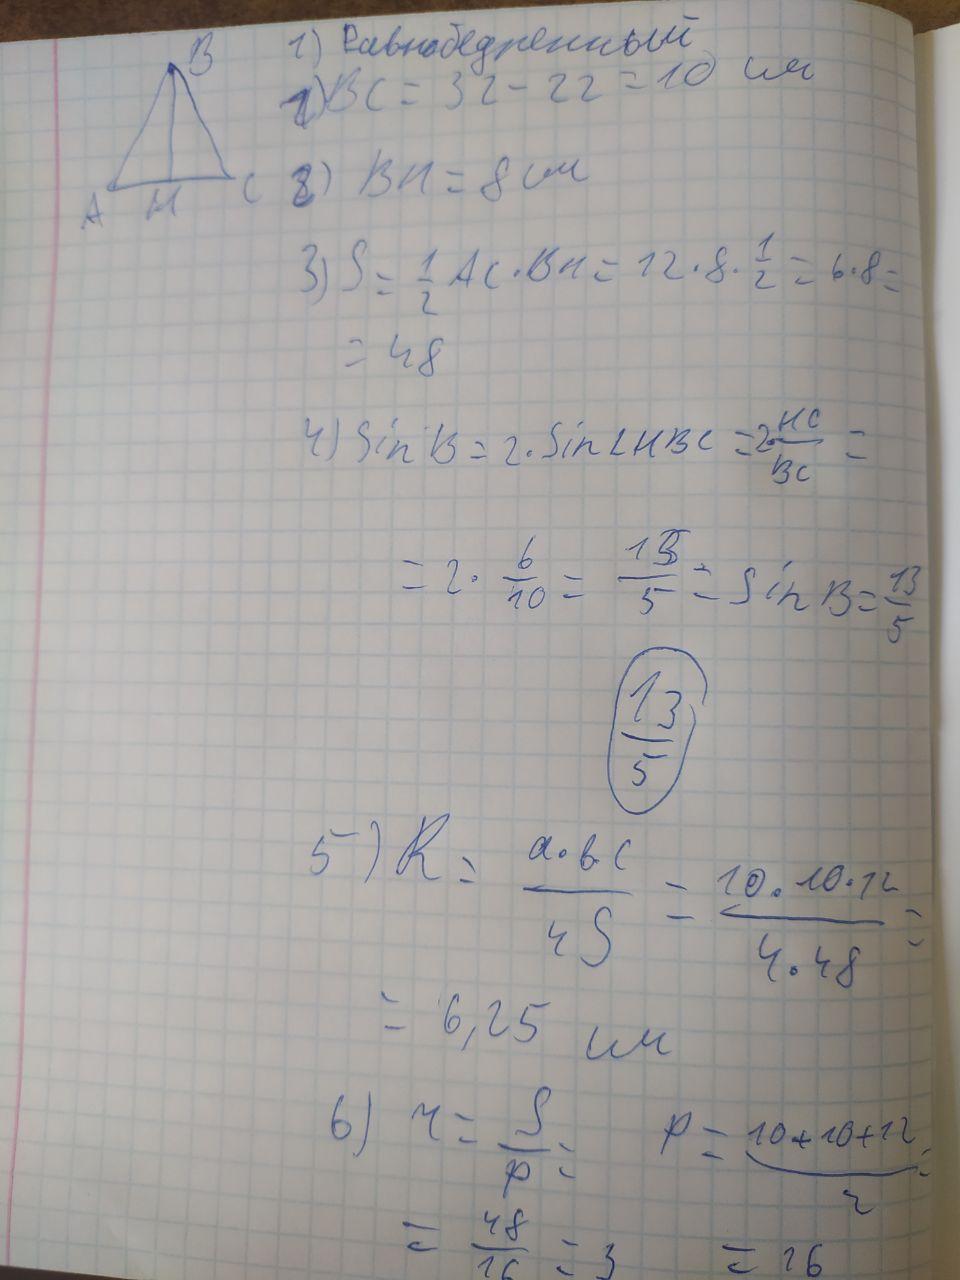 B
A H C
1) Равнобедренный
1) BC = 32 - 22 = 10 см
2) BH = 8 см
3) S = 1/2 AC · BH = 12 · 8 · 1/2 = 6 · 8 =
= 48
4) Sin B = 2 · Sin ∠HBC = 2 · HC/BC =
= 2 · 6/10 = 13/5 = Sin B = 13/5
13/5
5) R = a · b · c / 4S = 10 · 10 · 12 / 4 · 48 =
= 6,25 см
6) r = S/p = P = 10 + 10 + 12 / 2 =
= 48/16 = 3 = 16